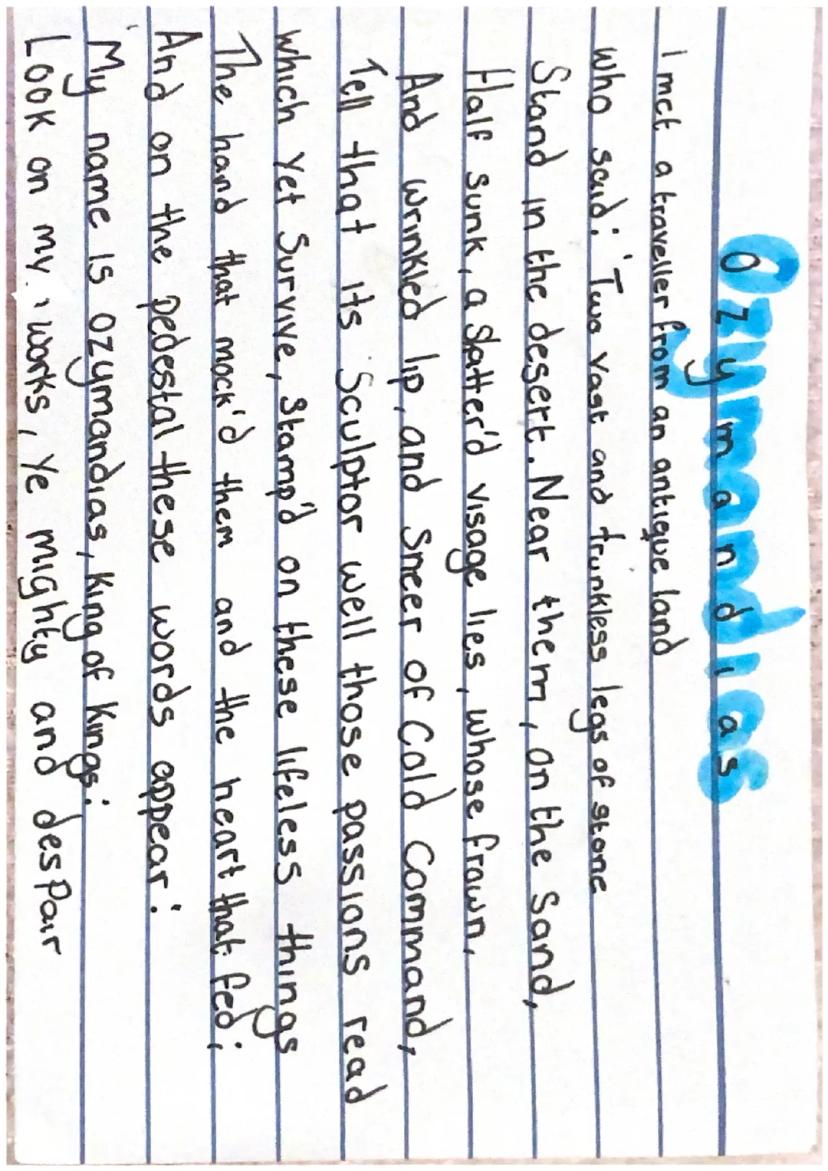 Ozymandias
I met a traveller from an antique land
who said: 'Two vast and trunkless legs of stone
Stand in the desert. Near them, on the Sand,
Half Sunk, a Shatter'd visage lies, whose frown,
And wrinkled lip, and Sneer of Cold Command,
Tell that its Sculptor well those passions read
which yet Survive, Stamp'd on these lifeless things
The hand that mock'd them and the heart that fed;
And on the pedestal these words appear:
'My name is Ozymandias, King of Kings:
Look on my works, Ye Mighty and despair